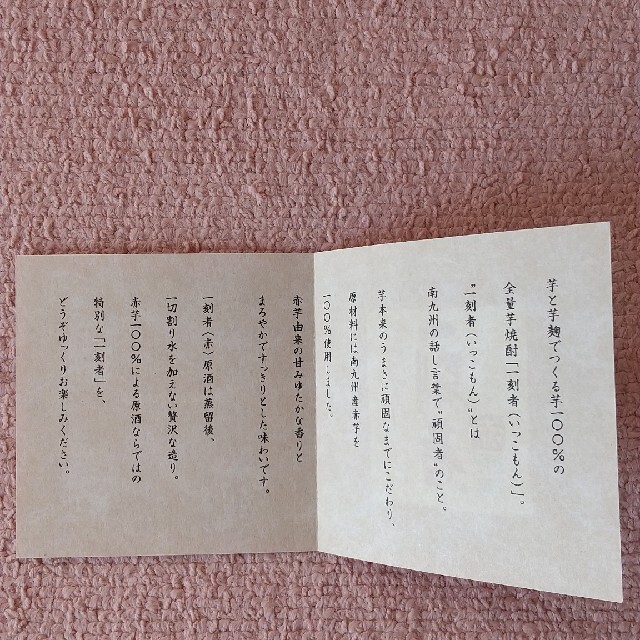 芋と芋麹でつくる芋一〇〇%の
全量芋焼酎「一刻者(いっこもん)」。
“一刻者(いっこもん)”とは
南九州の話し言葉で“頑固者”のこと。
芋本来のうまさに頑固なまでにこだわり、
原材料には南九州産赤芋を
一〇〇%使用しました。
赤芋由来の甘みゆたかな香りと
まろやかですっきりとした味わいです。
一刻者(赤)原酒は蒸留後、
一切割り水を加えない贅沢な造り。
赤芋一〇〇%による原酒ならではの
特別な「一刻者」を、
どうぞゆっくりお楽しみください。